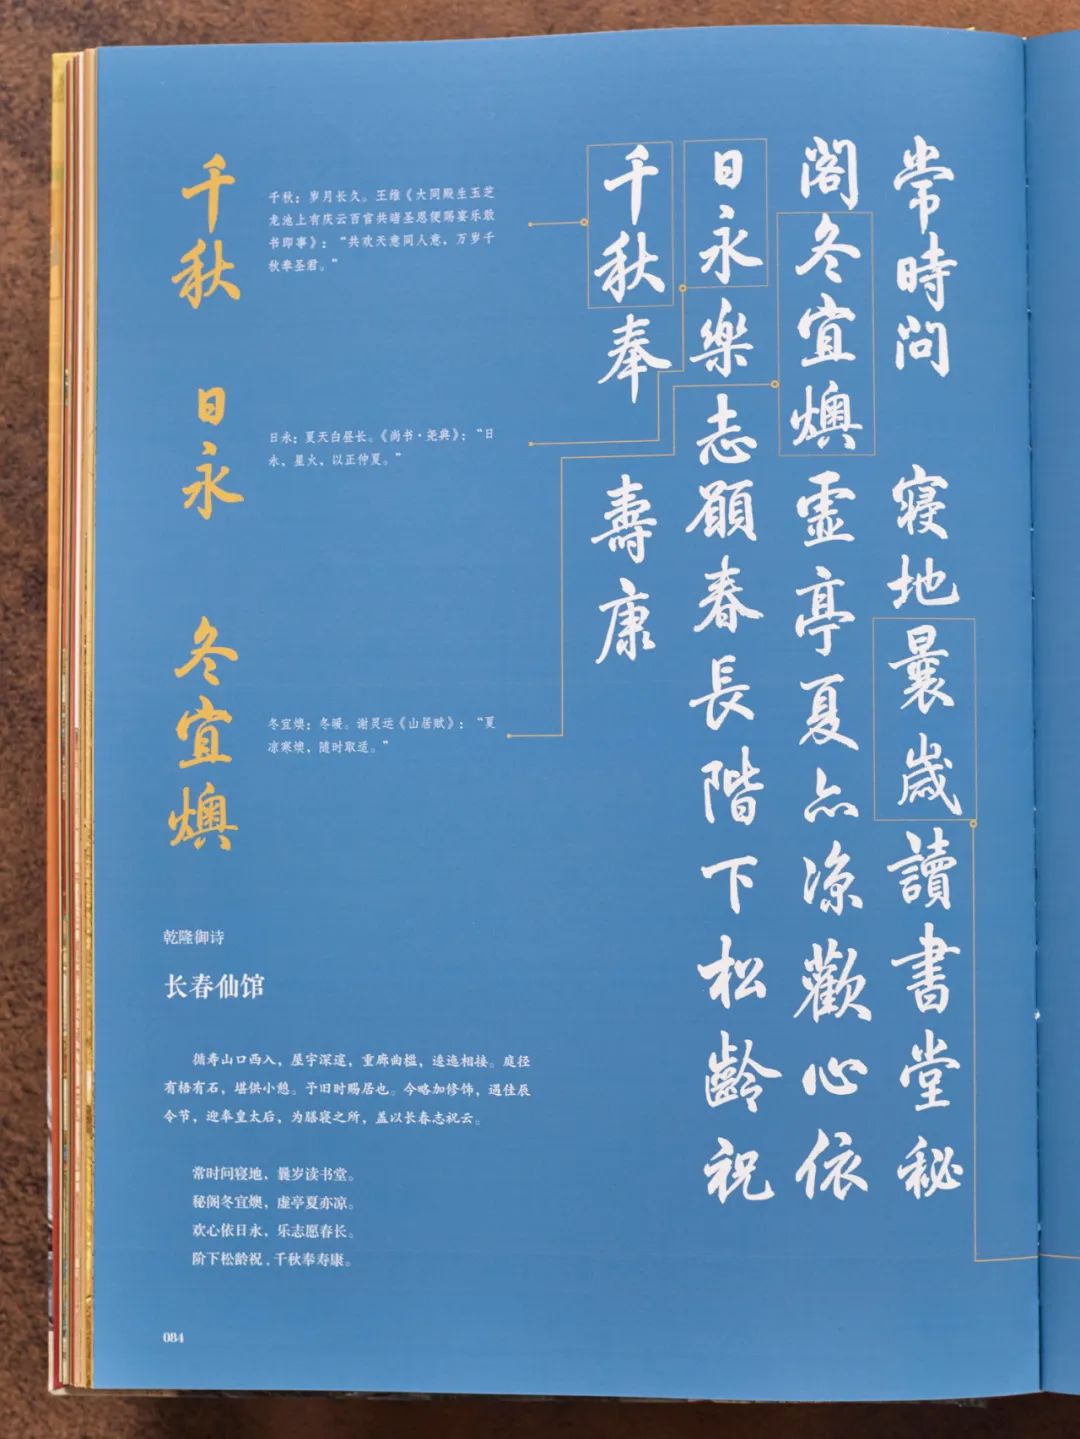 常時問 寢地曩歲讀書堂秘
閣冬宜燠虛亭夏亦涼歡心依
日永樂志願春長階下松齡祝
千秋奉 壽康
千秋
千秋：岁月长久。王维《大同殿生玉芝
龙池上有庆云百官共睹圣恩便赐宴乐敢
书即事》：“共欢天意同人意，万岁千
秋奉圣君。”
日永
日永：夏天白昼长。《尚书·尧典》：“日
永，星火，以正仲夏。”
冬宜燠
冬宜燠：冬暖。谢灵运《山居赋》：“夏
凉寒燠，随时取适。”
乾隆御诗
长春仙馆
循寿山口西入，屋宇深邃，重廊曲槛，逶迤相接。庭径
有梧有石，堪供小憩。予旧时赐居也。今略加修饰，遇佳辰
令节，迎奉皇太后，为膳寝之所，盖以长春志祝云。
常时问寝地，曩岁读书堂。
秘阁冬宜燠，虚亭夏亦凉。
欢心依日永，乐志愿春长。
阶下松龄祝，千秋奉寿康。
084